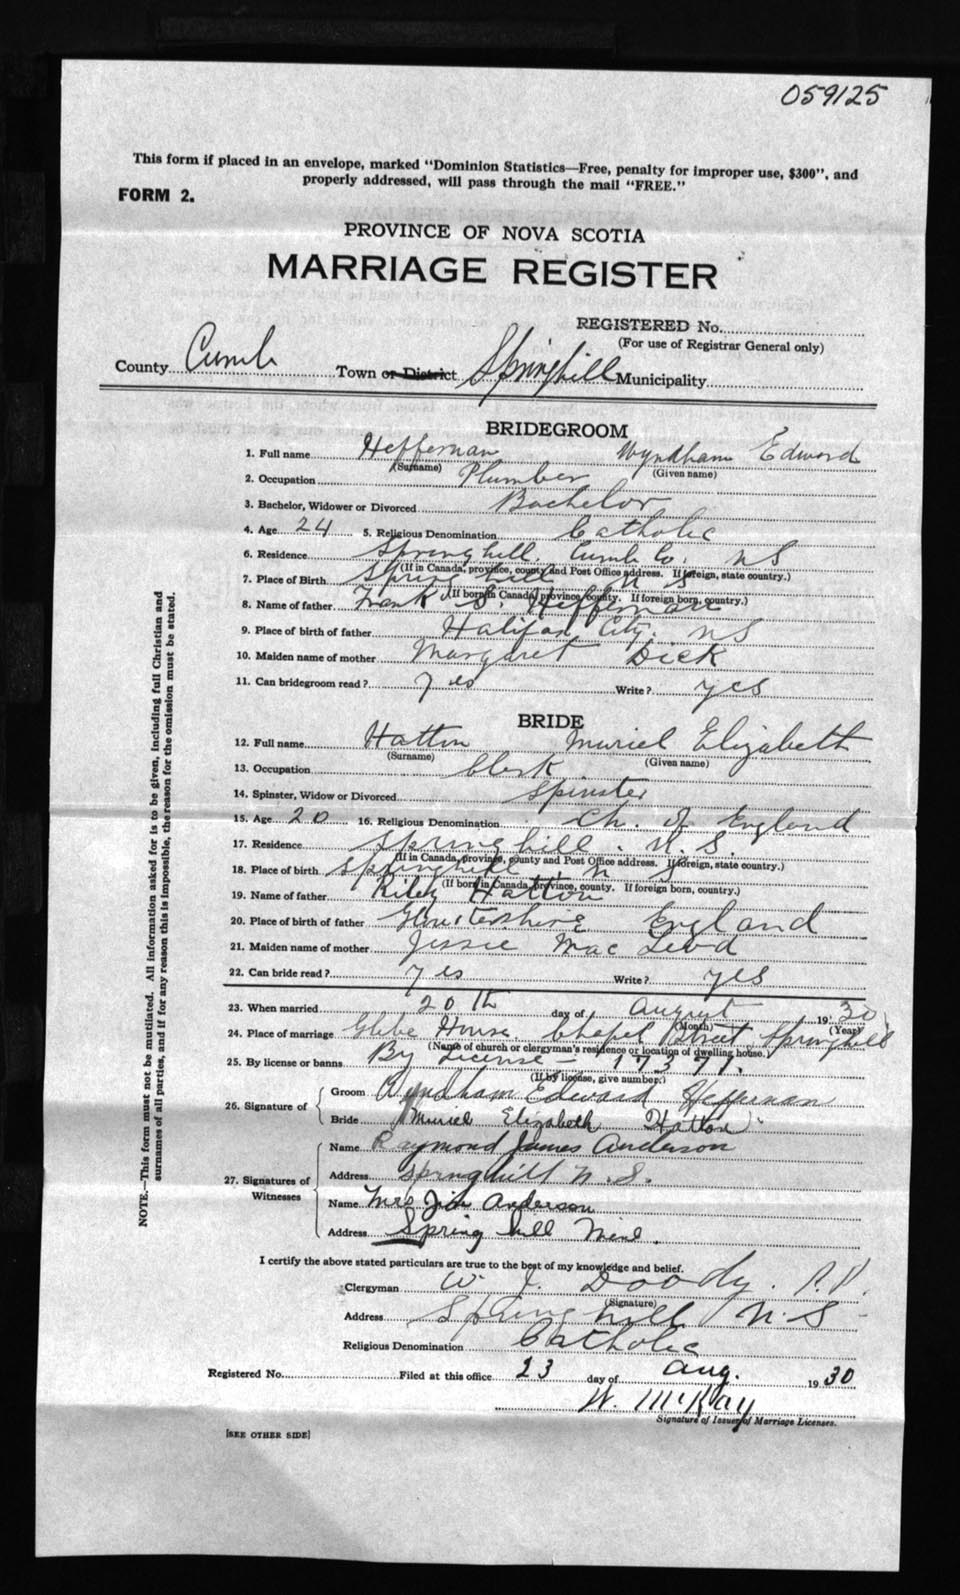 059125
This form if placed in an envelope, marked "Dominion Statistics—Free, penalty for improper use, $300", and
properly addressed, will pass through the mail "FREE."
FORM 2.
PROVINCE OF NOVA SCOTIA
MARRIAGE REGISTER
REGISTERED No.
(For use of Registrar General only)
County Cumb Town or District Springhill Municipality
BRIDEGROOM
1. Full name Heffernan Wyndham Edward
(Surname) (Given name)
2. Occupation Plumber
3. Bachelor, Widower or Divorced Bachelor
4. Age 24 5. Religious Denomination Catholic
6. Residence Springhill. Cumb. Co. NS
(If in Canada, province, county and Post Office address. If foreign, state country.)
7. Place of Birth Springhill N S
(If born in Canada, province, county. If foreign born, country.)
8. Name of father Frank S. Heffernan
9. Place of birth of father Halifax City. NS
10. Maiden name of mother Margaret Dick
11. Can bridegroom read? yes Write? yes
BRIDE
12. Full name Hatton Muriel Elizabeth
(Surname) (Given name)
13. Occupation Clerk
14. Spinster, Widow or Divorced Spinster
15. Age 20 16. Religious Denomination Ch. of England
17. Residence Springhill. N.S.
(If in Canada, province, county and Post Office address. If foreign, state country.)
18. Place of birth Springhill N S
(If born in Canada, province, county. If foreign born, country.)
19. Name of father Riley Hatton
20. Place of birth of father England
21. Maiden name of mother Jessie MacLeod
22. Can bride read? yes Write? yes
23. When married 20th day of August 1930
(Month) (Year)
24. Place of marriage Glebe House, Chapel Street, Springhill
(Name of church or clergyman's residence or location of dwelling house.)
25. By license or banns By License - 17371.
(If by license, give number.)
26. Signature of
Groom Wyndham Edward Heffernan
Bride Muriel Elizabeth Hatton
27. Signatures of Witnesses
Name Raymond James Anderson
Address Springhill N.S.
Name Mrs Jim Anderson
Address Spring hill Mine.
I certify the above stated particulars are true to the best of my knowledge and belief.
Clergyman W. J. Doody. P.P.
(Signature)
Address Springhill N.S
Religious Denomination Catholic
Registered No. Filed at this office 23 day of Aug. 1930
W. McKay
Signature of Issuer of Marriage Licenses.
[SEE OTHER SIDE]
NOTE.—This form must not be mutilated. All information asked for is to be given, including full Christian and
surnames of all parties, and if for any reason this is impossible, the reason for the omission must be stated.